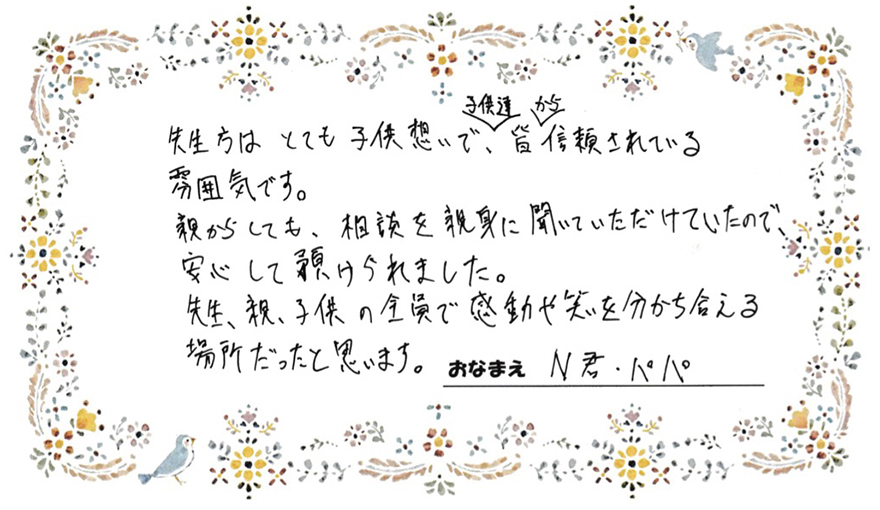 先生方は とても 子供想いで、子供達皆から信頼されている
雰囲気です。
親からしても、相談を親身に聞いていただけていたので、
安心して預けられました。
先生、親、子供の全員で感動や笑いを分かち合える
場所だったと思います。
おなまえ N君・パパ